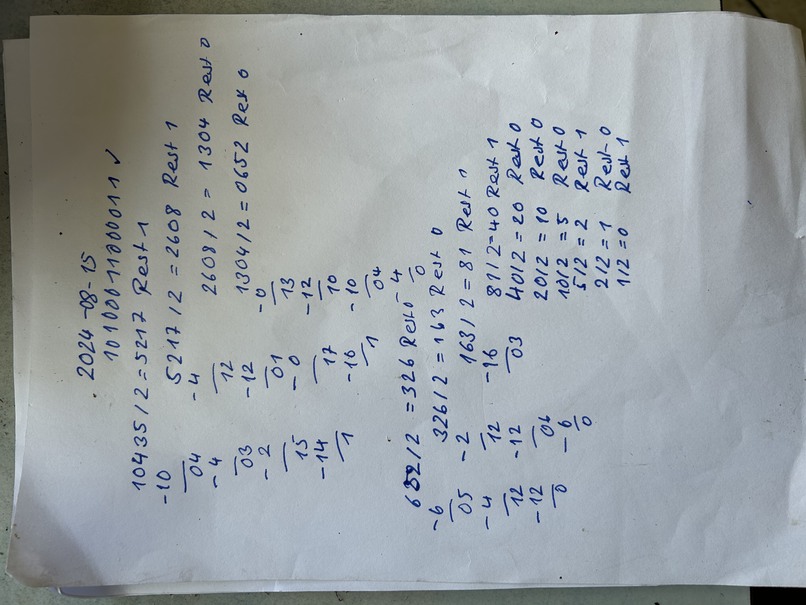 2024-08-15
10100011000011 ✓
10435/2 = 5217 Rest 1
-10
04
-4
03
-2
15
-14
1
5217/2 = 2608 Rest 1
-4
12
-12
01
-0
17
-16
1
2608/2 = 1304 Rest 0
1304/2 = 0652 Rest 0
-0
13
-12
10
-10
04
-4
0
652/2 = 326 Rest 0
-6
05
-4
12
-12
0
326/2 = 163 Rest 0
-2
12
-12
06
-6
0
163/2 = 81 Rest 1
-16
03
81/2 = 40 Rest 1
40/2 = 20 Rest 0
20/2 = 10 Rest 0
10/2 = 5 Rest 0
5/2 = 2 Rest 1
2/2 = 1 Rest 0
1/2 = 0 Rest 1